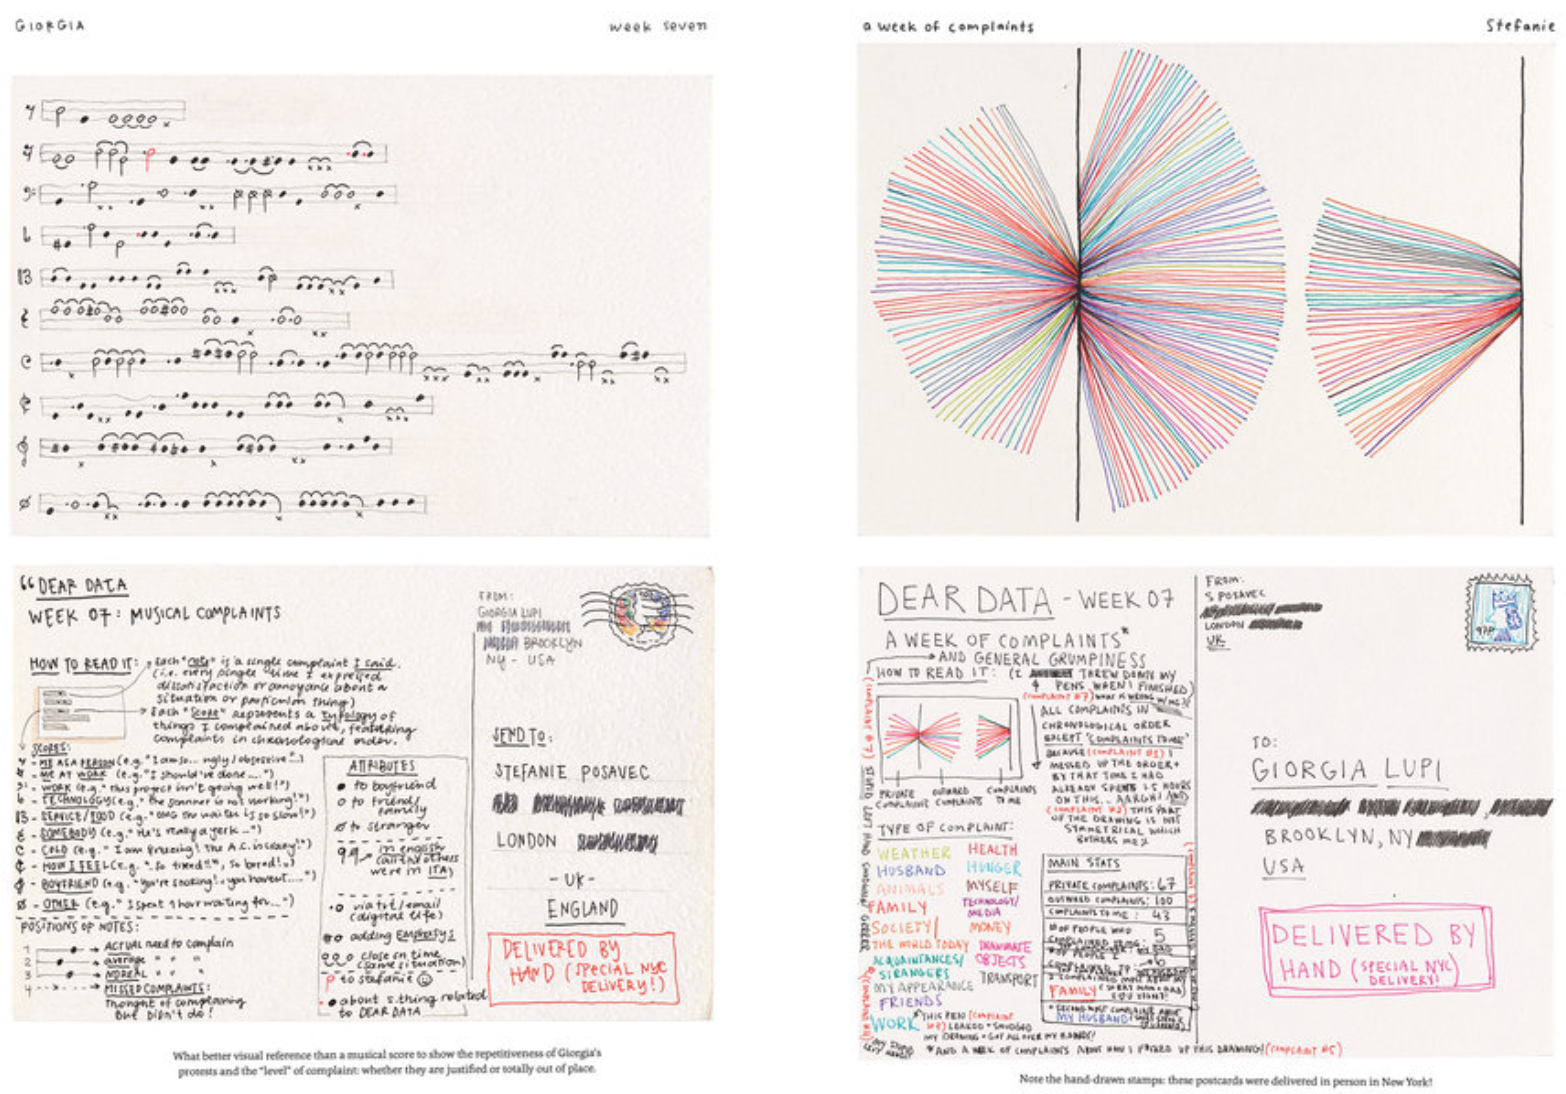 GIORGIA
week seven
a week of complaints
Stefanie
"DEAR DATA
WEEK 07: MUSICAL COMPLAINTS
HOW TO READ IT:
Each "note" is a single complaint I said.
(i.e. every single time I expressed
dissatisfaction or annoyance about a
situation or particular thing)
Each "score" represents a typology of
things I complained about, featuring
complaints in chronological order.
SCORES:
ME AS A PERSON (e.g. "I am so... ugly/obsessive")
ME AT WORK (e.g. "I should've done...")
WORK (e.g. "this project isn't going well!")
TECHNOLOGY (e.g. "the scanner is not working!")
SERVICE/FOOD (e.g. "OMG the waiter is so slow!")
SOMEBODY (e.g. "He's really a jerk...")
COLD (e.g. "I am freezing! The A.C. is crazy!")
HOW I FEEL (e.g. "so tired!!", so bored!)
BOYFRIEND (e.g. "You're
OTHER (e.g. "I spent 1 hour waiting for...")
POSITIONS OF NOTES:
1 → ACTUAL need to complain
2 → average " " "
3 → " " "
4 → MISSED COMPLAINTS:
Thought of complaining
But Didn't do!
ATTRIBUTES
to boyfriend
to friend/
family
to stranger
in english
(all the others
were in ITA)
via txt/email
(digital life)
adding EMPHASYS
close in time
(same situation)
to stefanie
about s.thing related
to DEAR DATA
FROM:
GIORGIA LUPI
BROOKLYN
NY - USA
SEND TO:
STEFANIE POSAVEC
LONDON
- UK -
ENGLAND
DELIVERED BY
HAND (SPECIAL NYC
DELIVERY!)
What better visual reference than a musical score to show the repetitiveness of Giorgia's
protests and the "level" of complaint: whether they are justified or totally out of place.
DEAR DATA - WEEK 07
A WEEK OF COMPLAINTS*
→ AND GENERAL GRUMPINESS
HOW TO READ IT: (I THREW DOWN MY
PENS WHEN I FINISHED)
(COMPLAINT #7)
ALL COMPLAINTS IN
CHRONOLOGICAL ORDER
EXCEPT 'COMPLAINTS TO ME'
BECAUSE (COMPLAINT #1) I
MESSED UP THE ORDER +
BY THAT TIME I HAD
ALREADY SPENT 1.5 HOURS
ON THIS... AARGH! AND
(COMPLAINT #2) THIS PART
OF THE DRAWING IS NOT
SYMMETRICAL WHICH
BOTHERS ME
PRIVATE COMPLAINTS
OUTWARD COMPLAINTS
COMPLAINTS TO ME
TYPE OF COMPLAINT:
WEATHER
HUSBAND
ANIMALS
FAMILY
SOCIETY/
THE WORLD TODAY
ACQUAINTANCES/
STRANGERS
MY APPEARANCE
FRIENDS
WORK
HEALTH
HUNGER
MYSELF
TECHNOLOGY/
MEDIA
MONEY
INANIMATE
OBJECTS
TRANSPORT
MAIN STATS
PRIVATE COMPLAINTS: 67
OUTWARD COMPLAINTS: 100
COMPLAINTS TO ME: 43
# OF PEOPLE WHO
COMPLAINED TO ME: 5
FAMILY
MY HUSBAND
*THIS PEN (COMPLAINT
LEAKED + SMUDGED
MY DRAWING + GOT ALL OVER MY HANDS!
*AND A WEEK OF COMPLAINTS ABOUT HOW I F UP THIS DRAWING! (COMPLAINT #5)
FROM:
S POSAVEC
LONDON
UK
97P
TO:
GIORGIA LUPI
BROOKLYN, NY
USA
DELIVERED BY
HAND (SPECIAL NYC
DELIVERY!)
Note the hand-drawn stamps: these postcards were delivered in person in New York!